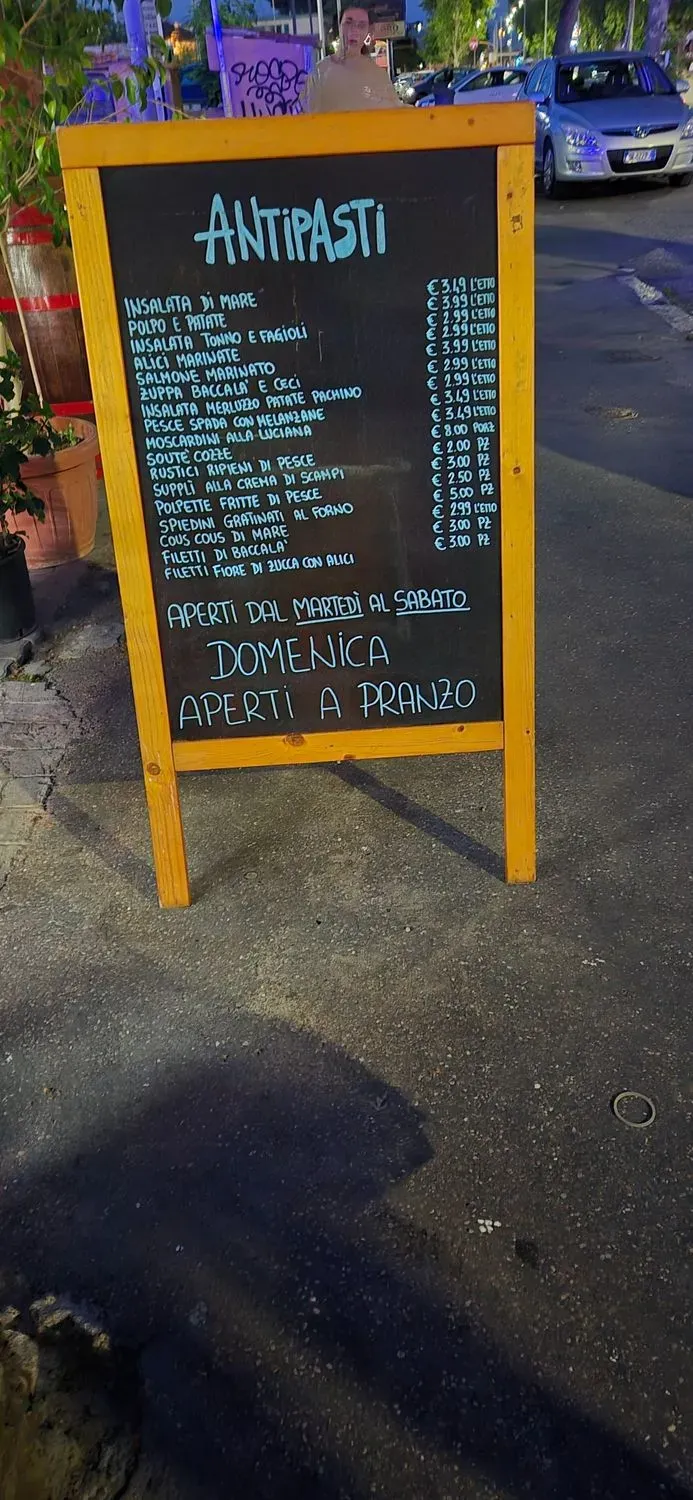 ANTIPASTI
INSALATA DI MARE € 3.49 L'ETTO
POLPO E PATATE € 3.99 L'ETTO
INSALATA TONNO E FAGIOLI € 2.99 L'ETTO
ALICI MARINATE € 2.99 L'ETTO
SALMONE MARINATO € 3.99 L'ETTO
ZUPPA BACCALA' E CECI € 2.99 L'ETTO
INSALATA MERLUZZO PATATE PACHINO € 2.99 L'ETTO
PESCE SPADA CON MELANZANE € 3.49 L'ETTO
MOSCARDINI ALLA LUCIANA € 3.49 L'ETTO
SOUTÈ COZZE € 8.00 PORZ
RUSTICI RIPIENI DI PESCE € 2.00 PZ
SUPPLÌ ALLA CREMA DI SCAMPI € 3.00 PZ
POLPETTE FRITTE DI PESCE € 2.50 PZ
SPIEDINI GRATINATI AL FORNO € 5.00 PZ
COUS COUS DI MARE € 2.99 L'ETTO
FILETTI DI BACCALA' € 3.00 PZ
FILETTI FIORE DI ZUCCA CON ALICI € 3.00 PZ
APERTI DAL MARTEDÌ AL SABATO
DOMENICA
APERTI A PRANZO